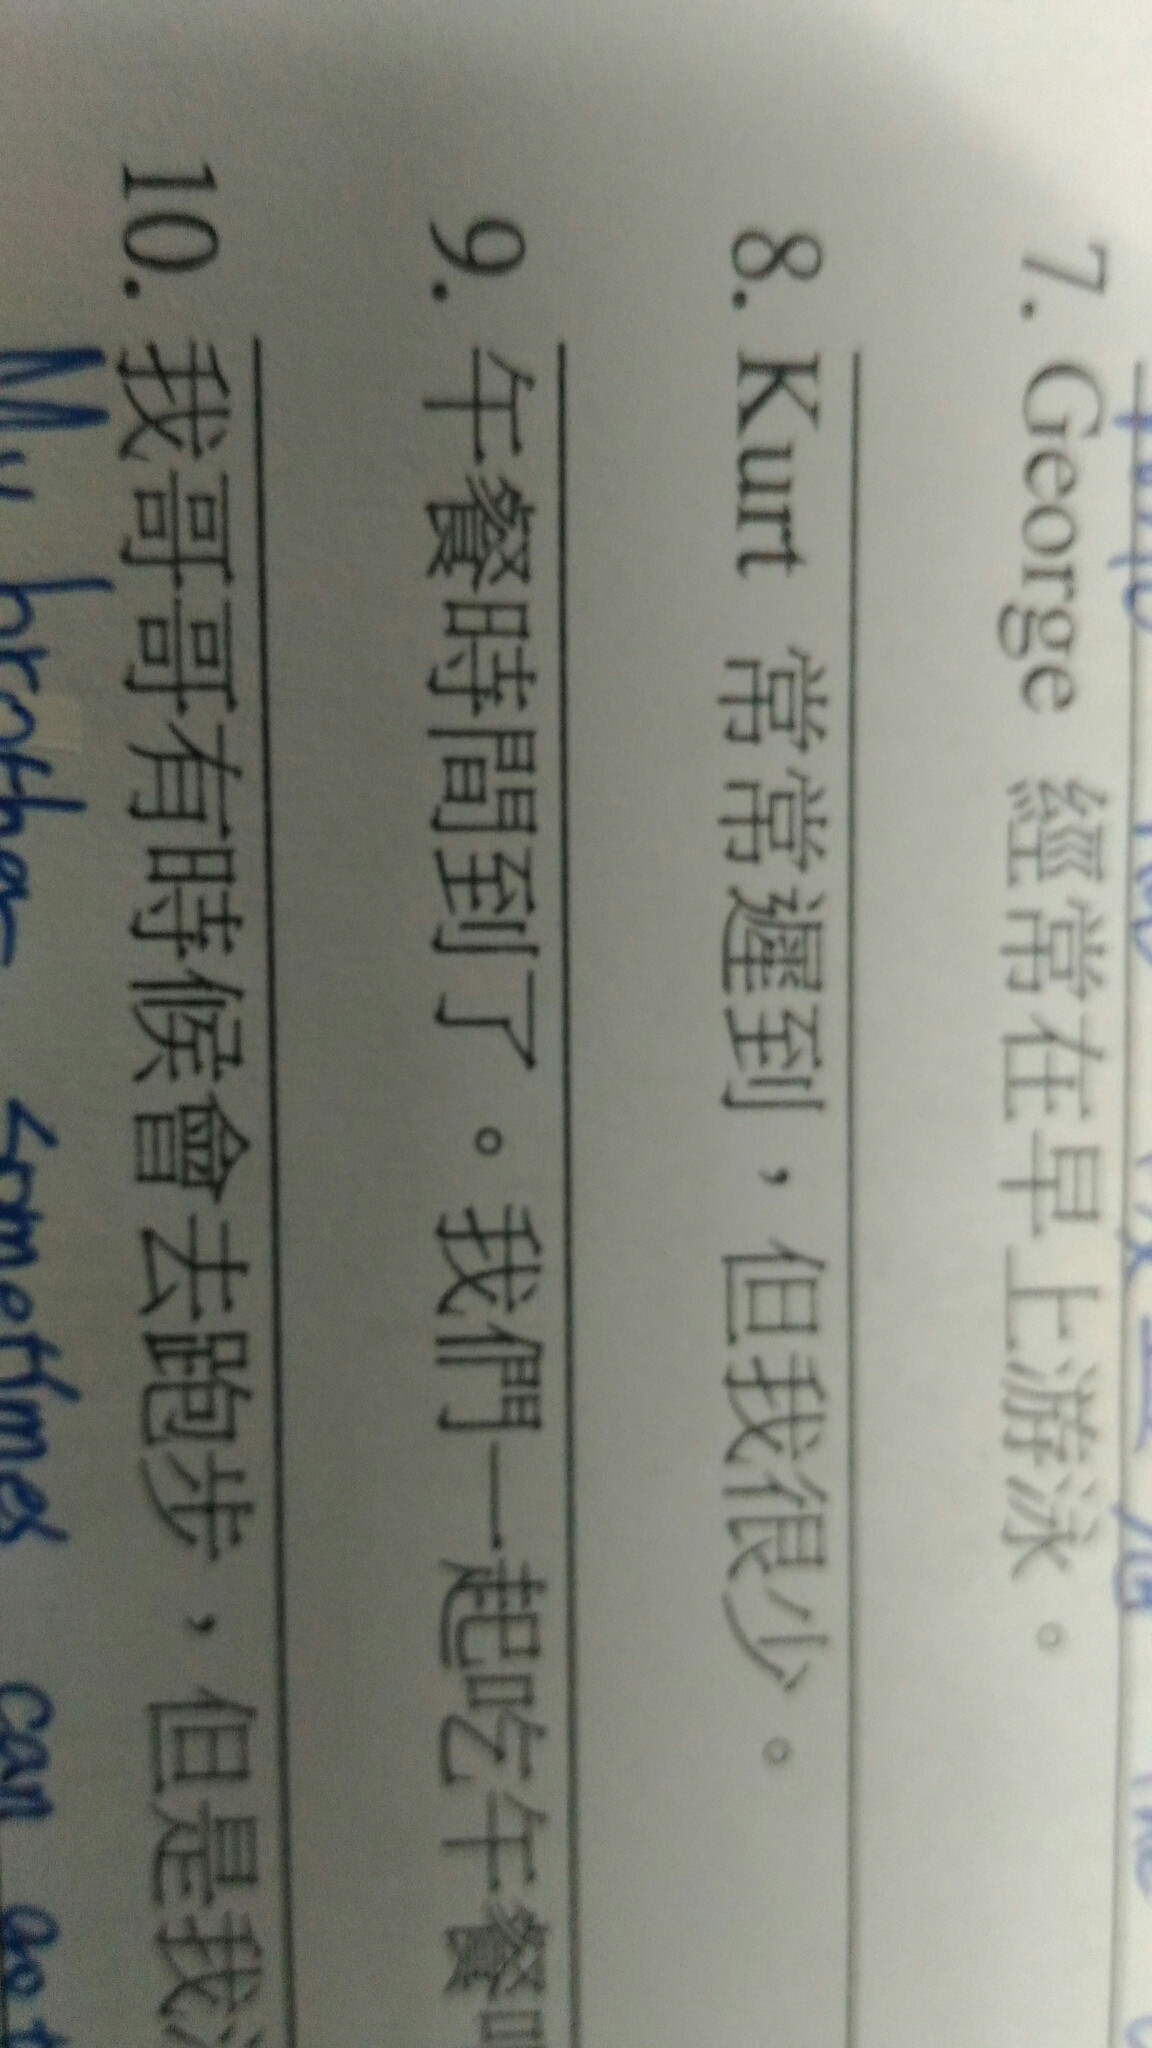 7. George 經常在早上游泳。
8. Kurt 常常遲到，但我很少。
9. 午餐時間到了。我們一起吃午餐吧
10. 我哥哥有時候會去跑步，但是我
My brother sometimes can go t